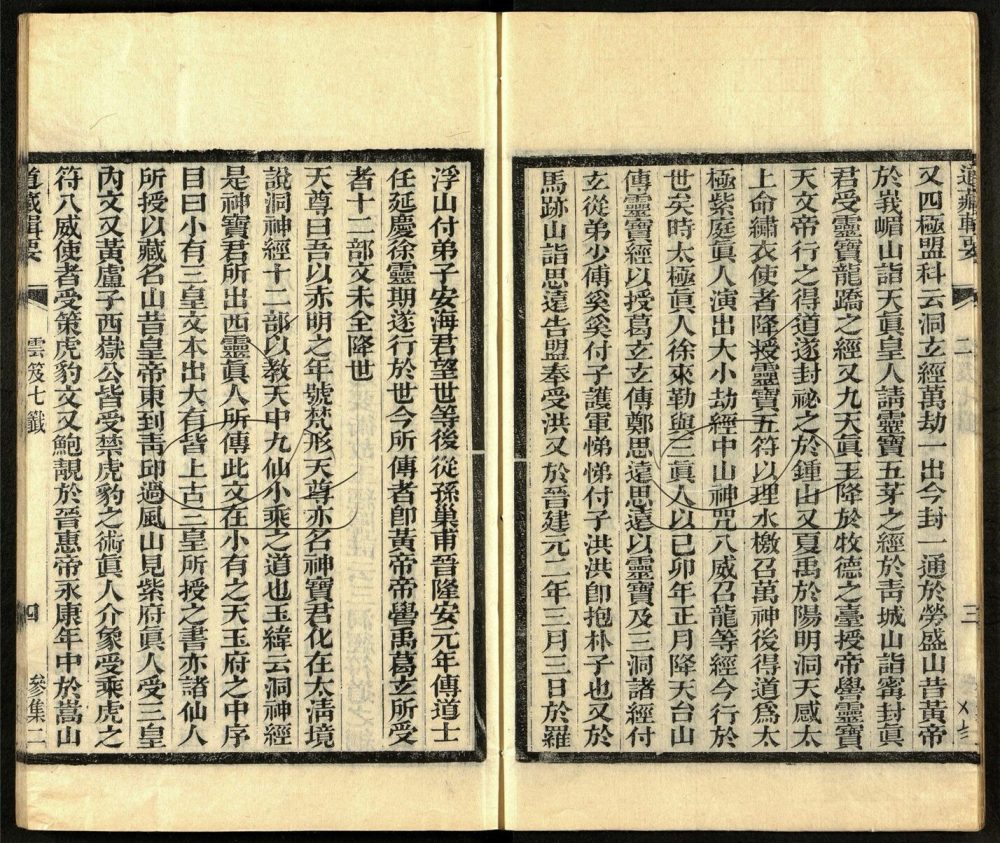 道藏輯要
三
又四極盟科云洞玄經萬劫一出今封一通於勞盛山昔黃帝
於峩嵋山詣天眞皇人請靈寶五芽之經於靑城山詣甯封眞
君受靈寶龍蹻之經又九天眞王降於牧德之臺授帝嚳靈寶
天文帝行之得道遂封祕之於鍾山又夏禹於陽明洞天感太
上命繡衣使者降授靈寶五符以理水檄召萬神後得道爲太
極紫庭眞人演出大小劫經中山神咒八威召龍等經今行於
世矣時太極眞人徐來勒與三眞人以己卯年正月降天台山
傳靈寶經以授葛玄玄傳鄭思遠思遠以靈寶及三洞諸經付
玄從弟少傅奚奚付子護軍悌悌付子洪洪卽抱朴子也又於
馬跡山詣思遠告盟奉受洪又於晉建元二年三月三日於羅
浮山付弟子安海君望世等後從孫巢甫晉隆安元年傳道士
任延慶徐靈期遂行於世今所傳者卽黃帝帝嚳禹葛玄所受
者十二部文未全降世
天尊曰吾以赤明之年號梵形天尊亦名神寶君化在太淸境
說洞神經十二部以教天中九仙小乘之道也玉緯云洞神經
是神寶君所出西靈眞人所傳此文在小有之天玉府之中序
目曰小有三皇文本出大有皆上古三皇所授之書亦諸仙人
所授以藏名山昔皇帝東到靑邱過風山見紫府眞人受三皇
內文又黃盧子西嶽公皆受禁虎豹之術眞人介象受乘虎之
符八威使者受策虎豹文又鮑靚於晉惠帝永康年中於嵩山
道藏輯要
雲笈七籤
四
參集二